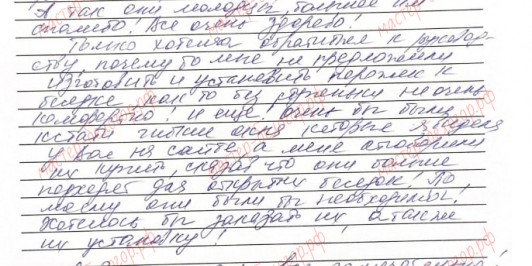 А так они молодцы, большое им
спасибо! Все очень здорово!
Только хотелось обратиться к руковод-
ству, почему-то мне не предложили
изготовить и установить порожек к
беседке, как то без ступеньки не очень
комфортно! И еще, очень бы были
кстати гибкие окна которые я видела
у вас на сайте, а меня отговорили
их купить, сказав что они больше
подходят для открытых беседок! Но
мне они были бы необходимы!
Хотелось бы заказать их, а также
их установку!